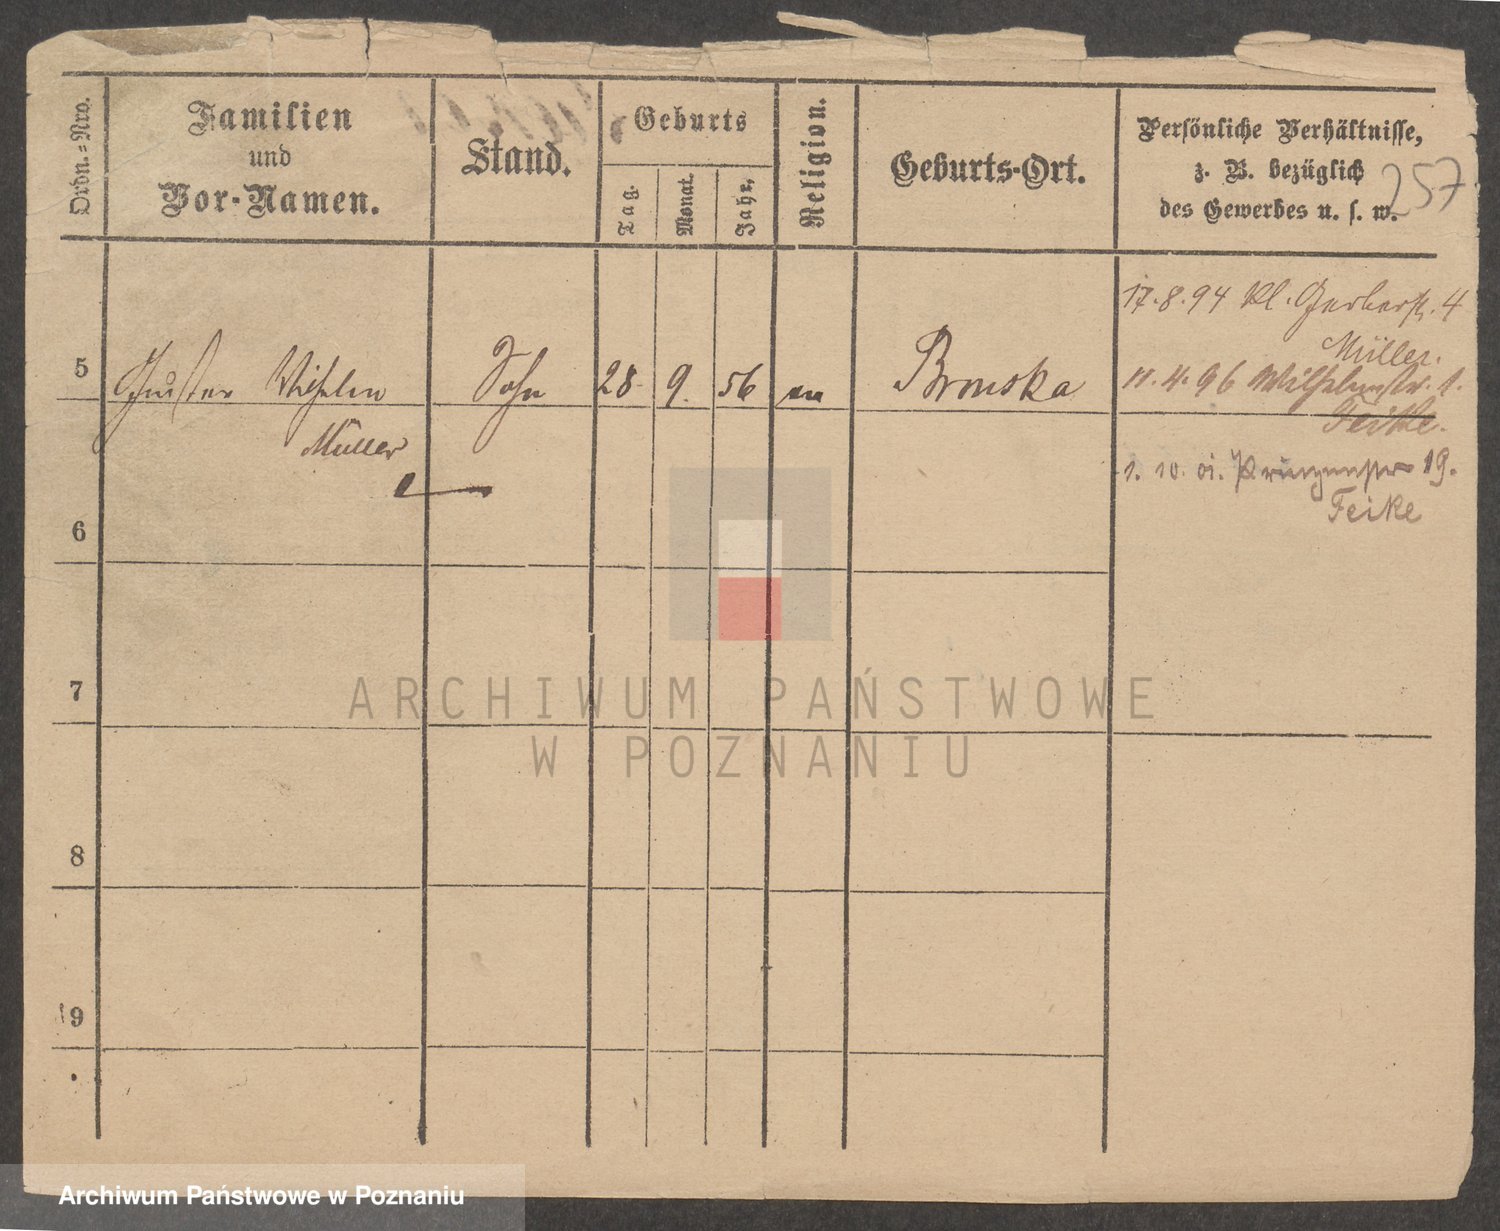 Ordn.=Nro.
Familien
und
Vor-Namen.
Stand.
Geburts
Tag.
Monat.
Jahr.
Religion.
Geburts-Ort.
Persönliche Verhältnisse,
z. B. bezüglich
des Gewerbes u. s. w.
257
17.8.94 Kl. Gerberstr. 4
Müller.
5
Wilhelm
Sohn
28
9.
56
Bronska
11.4.96 Wilhelmstr. 1.
Feike.
Müller
1. 10. 01. Prinzenstr 19.
Feike
6
7
8
9
ARCHIWUM PAŃSTWOWE
W POZNANIU
Archiwum Państwowe w Poznaniu